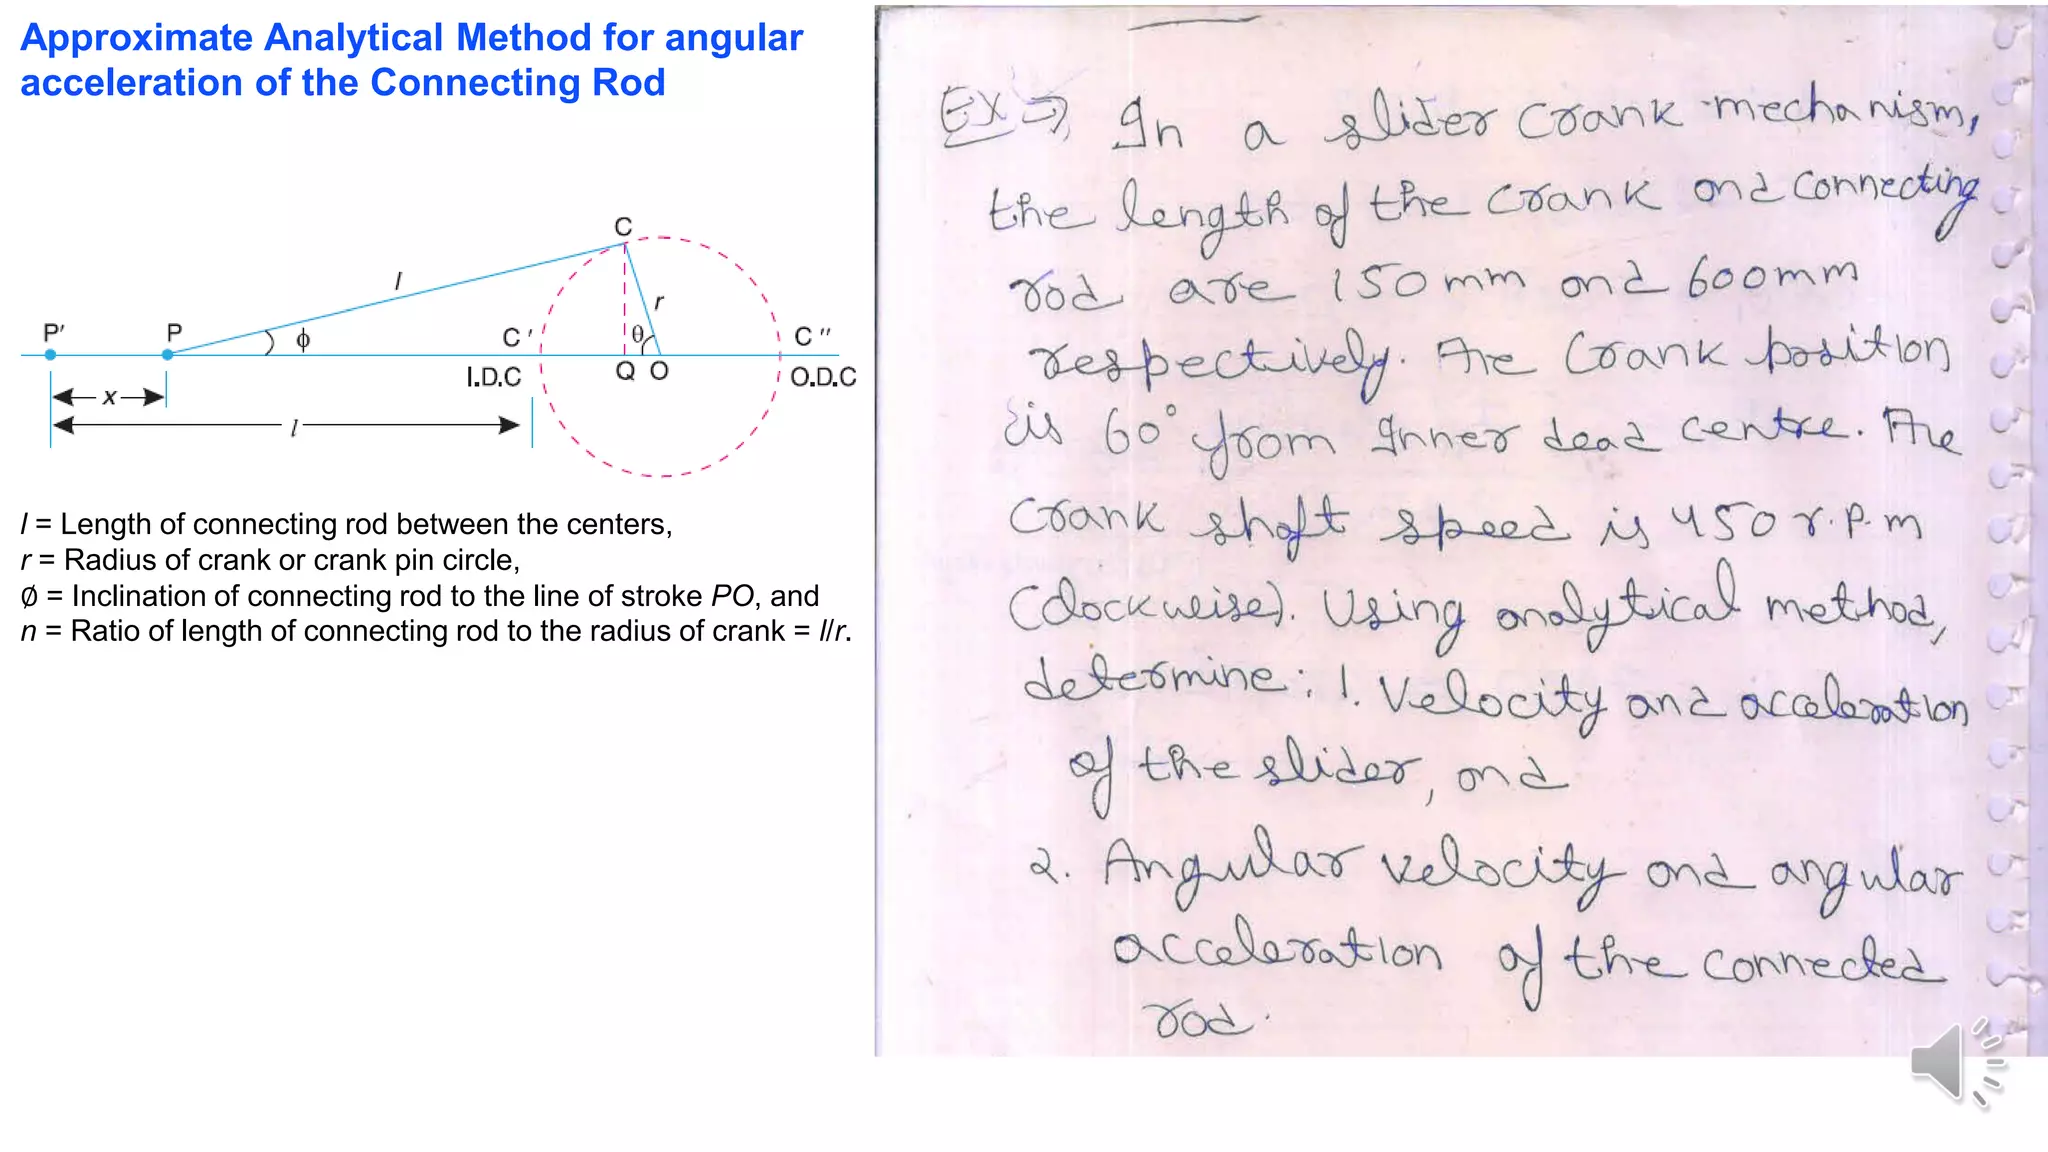 Approximate Analytical Method for angular
acceleration of the Connecting Rod
C
l
r
P′
P
ϕ
C ′
θ
C ″
I.D.C
Q O
O.D.C
x
l
l = Length of connecting rod between the centers,
r = Radius of crank or crank pin circle,
∅ = Inclination of connecting rod to the line of stroke PO, and
n = Ratio of length of connecting rod to the radius of crank = l/r.
Ex ⇒ In a slider crank mechanism,
the length of the crank and connecting
rod are 150 mm and 600 mm
respectively. The Crank position
is 60° from Inner dead centre. The
Crank shaft speed is 450 r.p.m
(clockweise). Using analytical method,
determine: 1. Velocity and acceleration
of the slider, and
2. Angular velocity and angular
acceleration of the connected
rod.